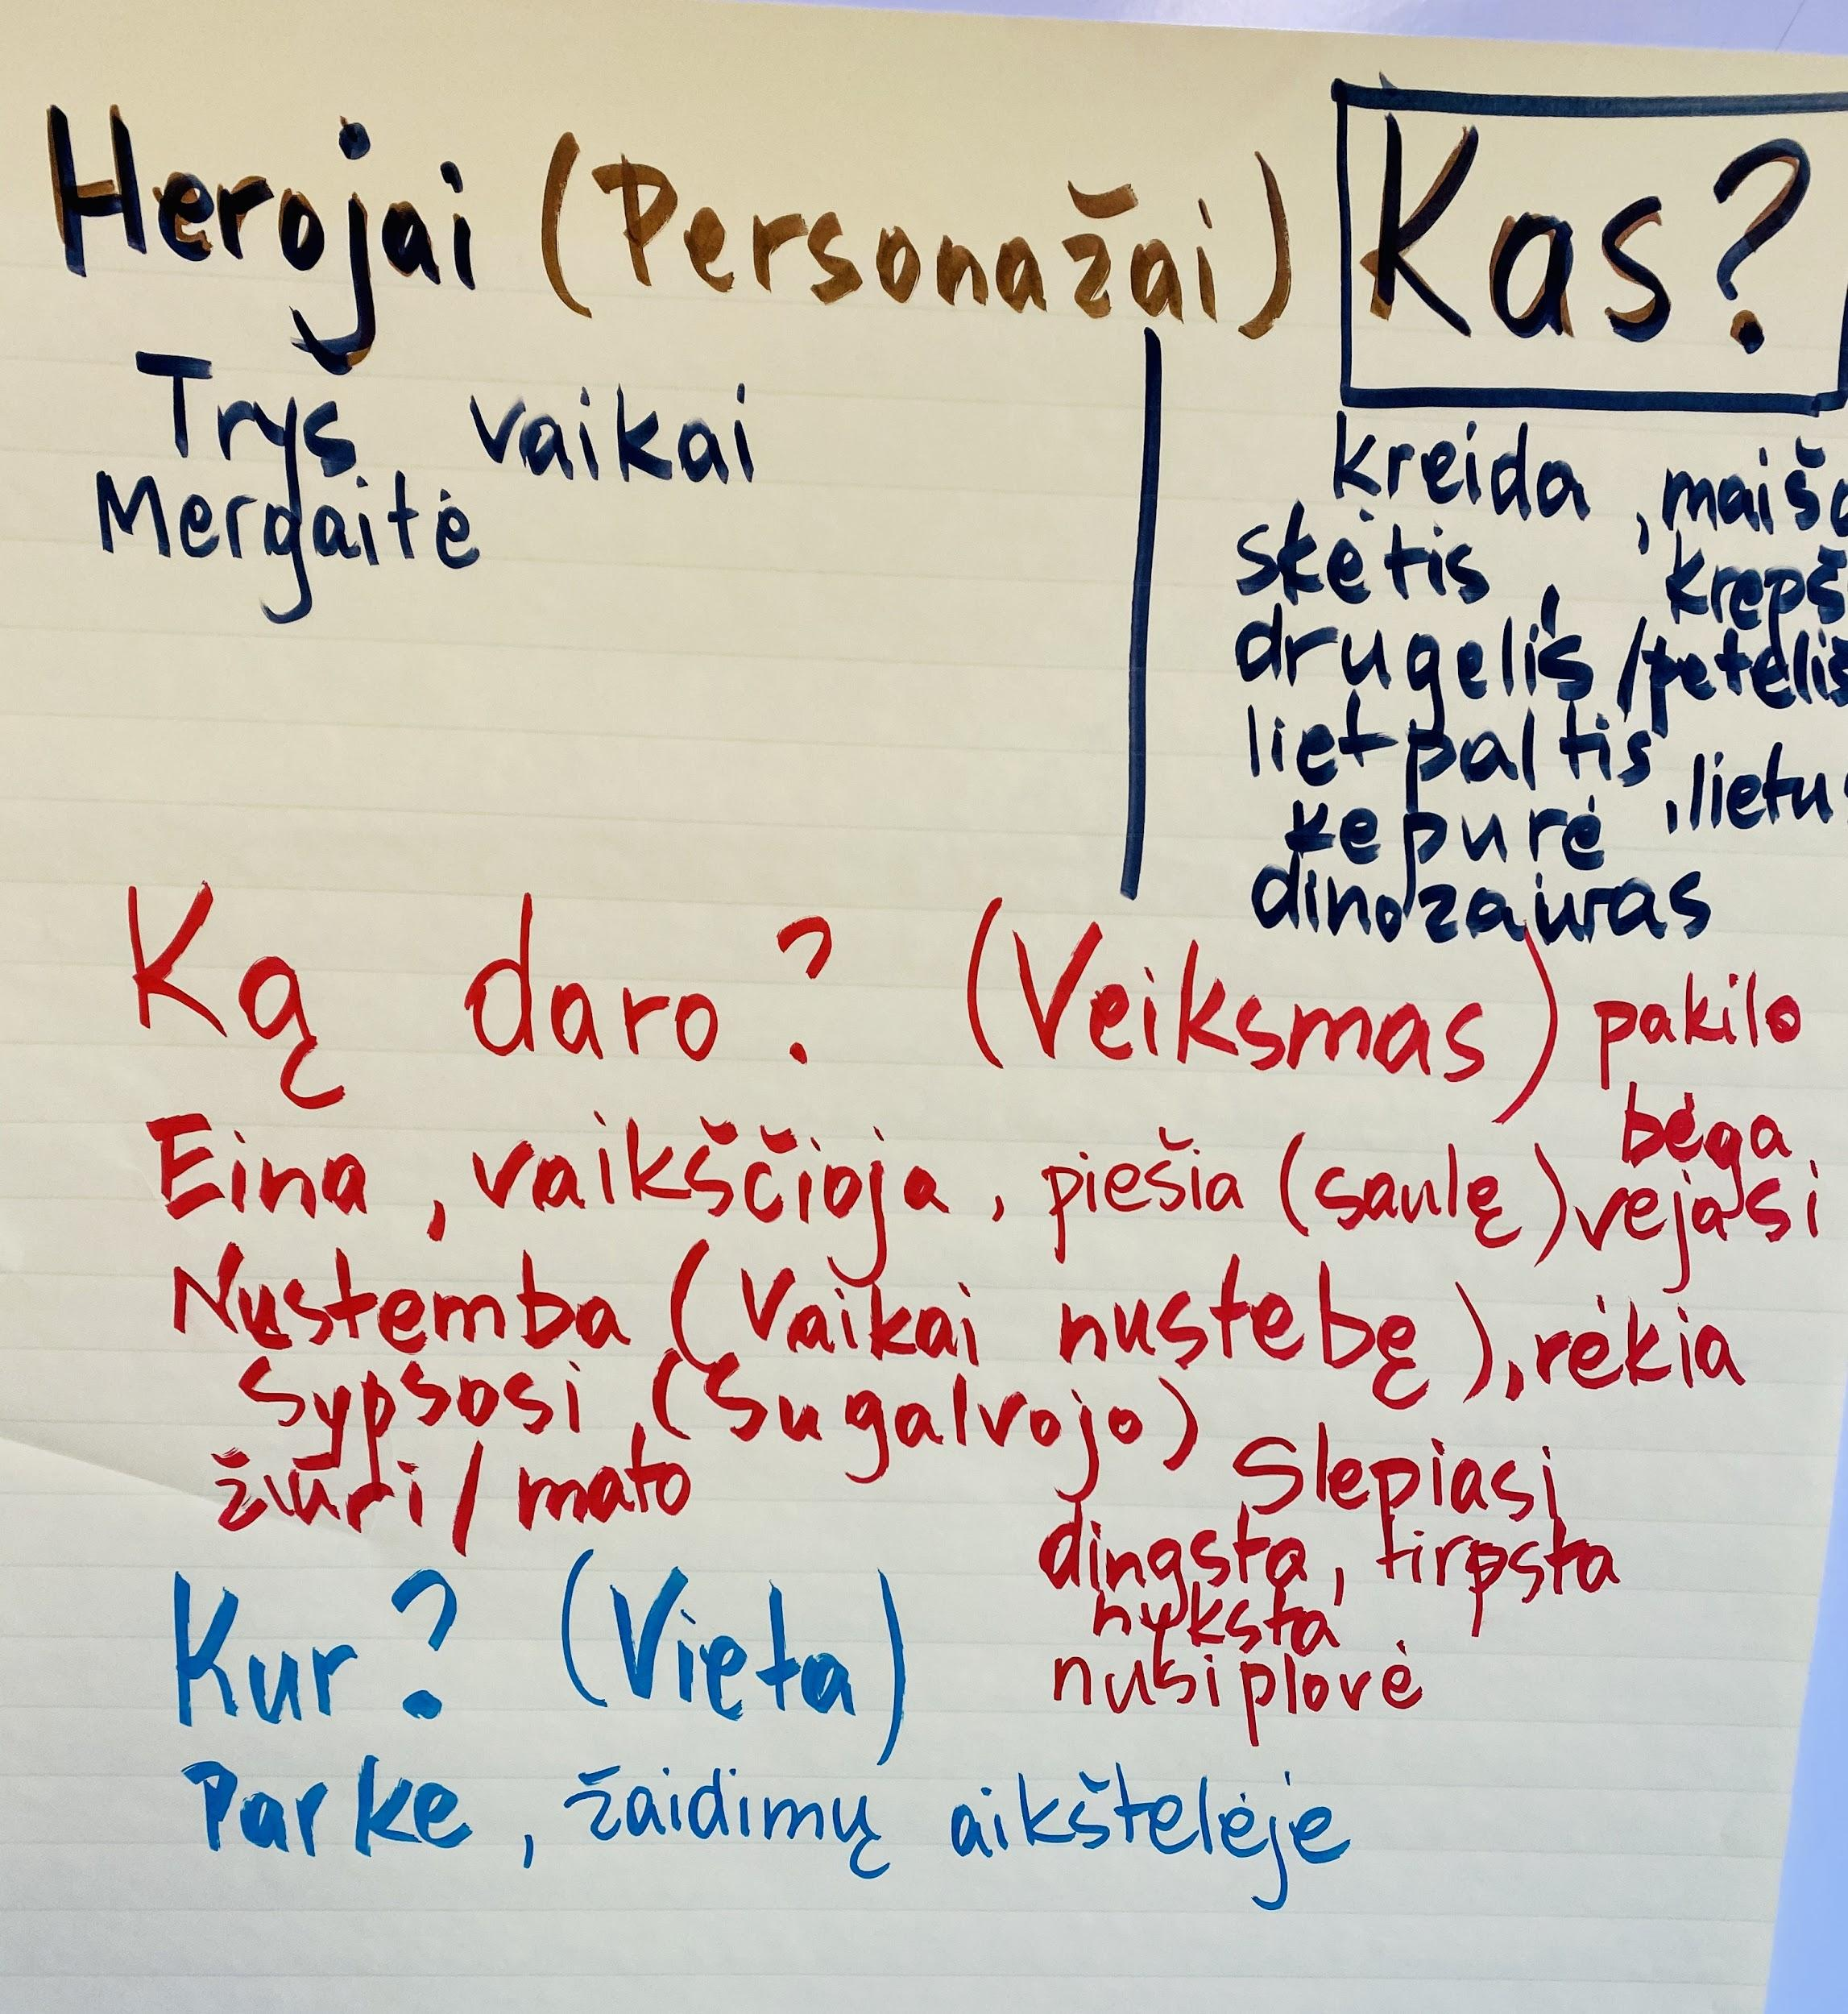 Herojai (Personažai) Kas?
Trys vaikai
Mergaitė
kreida, maiš
skėtis, krepš
drugelis / peteliš
lietpaltis, lietu
kepurė
dinozauras
Ką daro? (Veiksmas) pakilo
bėga
Eina, vaikščioja, piešia (saulę) vejasi
Nustemba (Vaikai nustebę), rėkia
Sypsosi (Sugalvojo)
žiuri / mato
Slepiasi
dingsta, tirpsta
nyksta
nusiplovė
Kur? (Vieta)
Parke, žaidimų aikštelėje